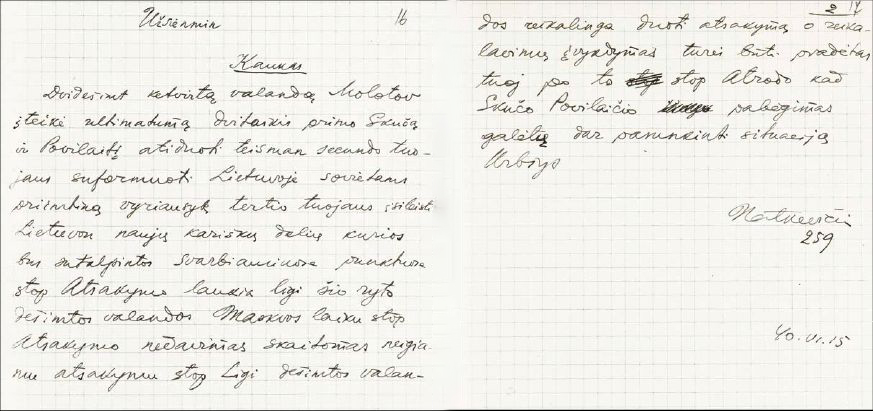 Užsienmin
16
Kaunas
Dvidešimt ketvirtą valandą Molotov
įteikė ultimatumą dvitaškis primo Skučą
ir Povilaitį atiduoti teisman secundo tuo-
jaus suformuoti Lietuvoje sovietams
priimtiną vyriausybę tertio tuojaus įsileisti
Lietuvon naujų kariškų dalių kurios
bus sutalpintos svarbiausiuose punktuose
stop Atsakymo laukia ligi šio ryto
dešimtos valandos Maskvos laiku stop
Atsakymo nedavimas skaitomas neigia-
mu atsakymu stop Ligi dešimtos valan-
2 17
dos reikalinga duoti atsakymą o reika-
lavimų įvykdymas turės būti pradėtas
tuoj po to stop Atrodo kad
Skučo Povilaičio pabėgimas
galėtų dar pasunkinti situaciją
Urbšys
259
40.VI.15